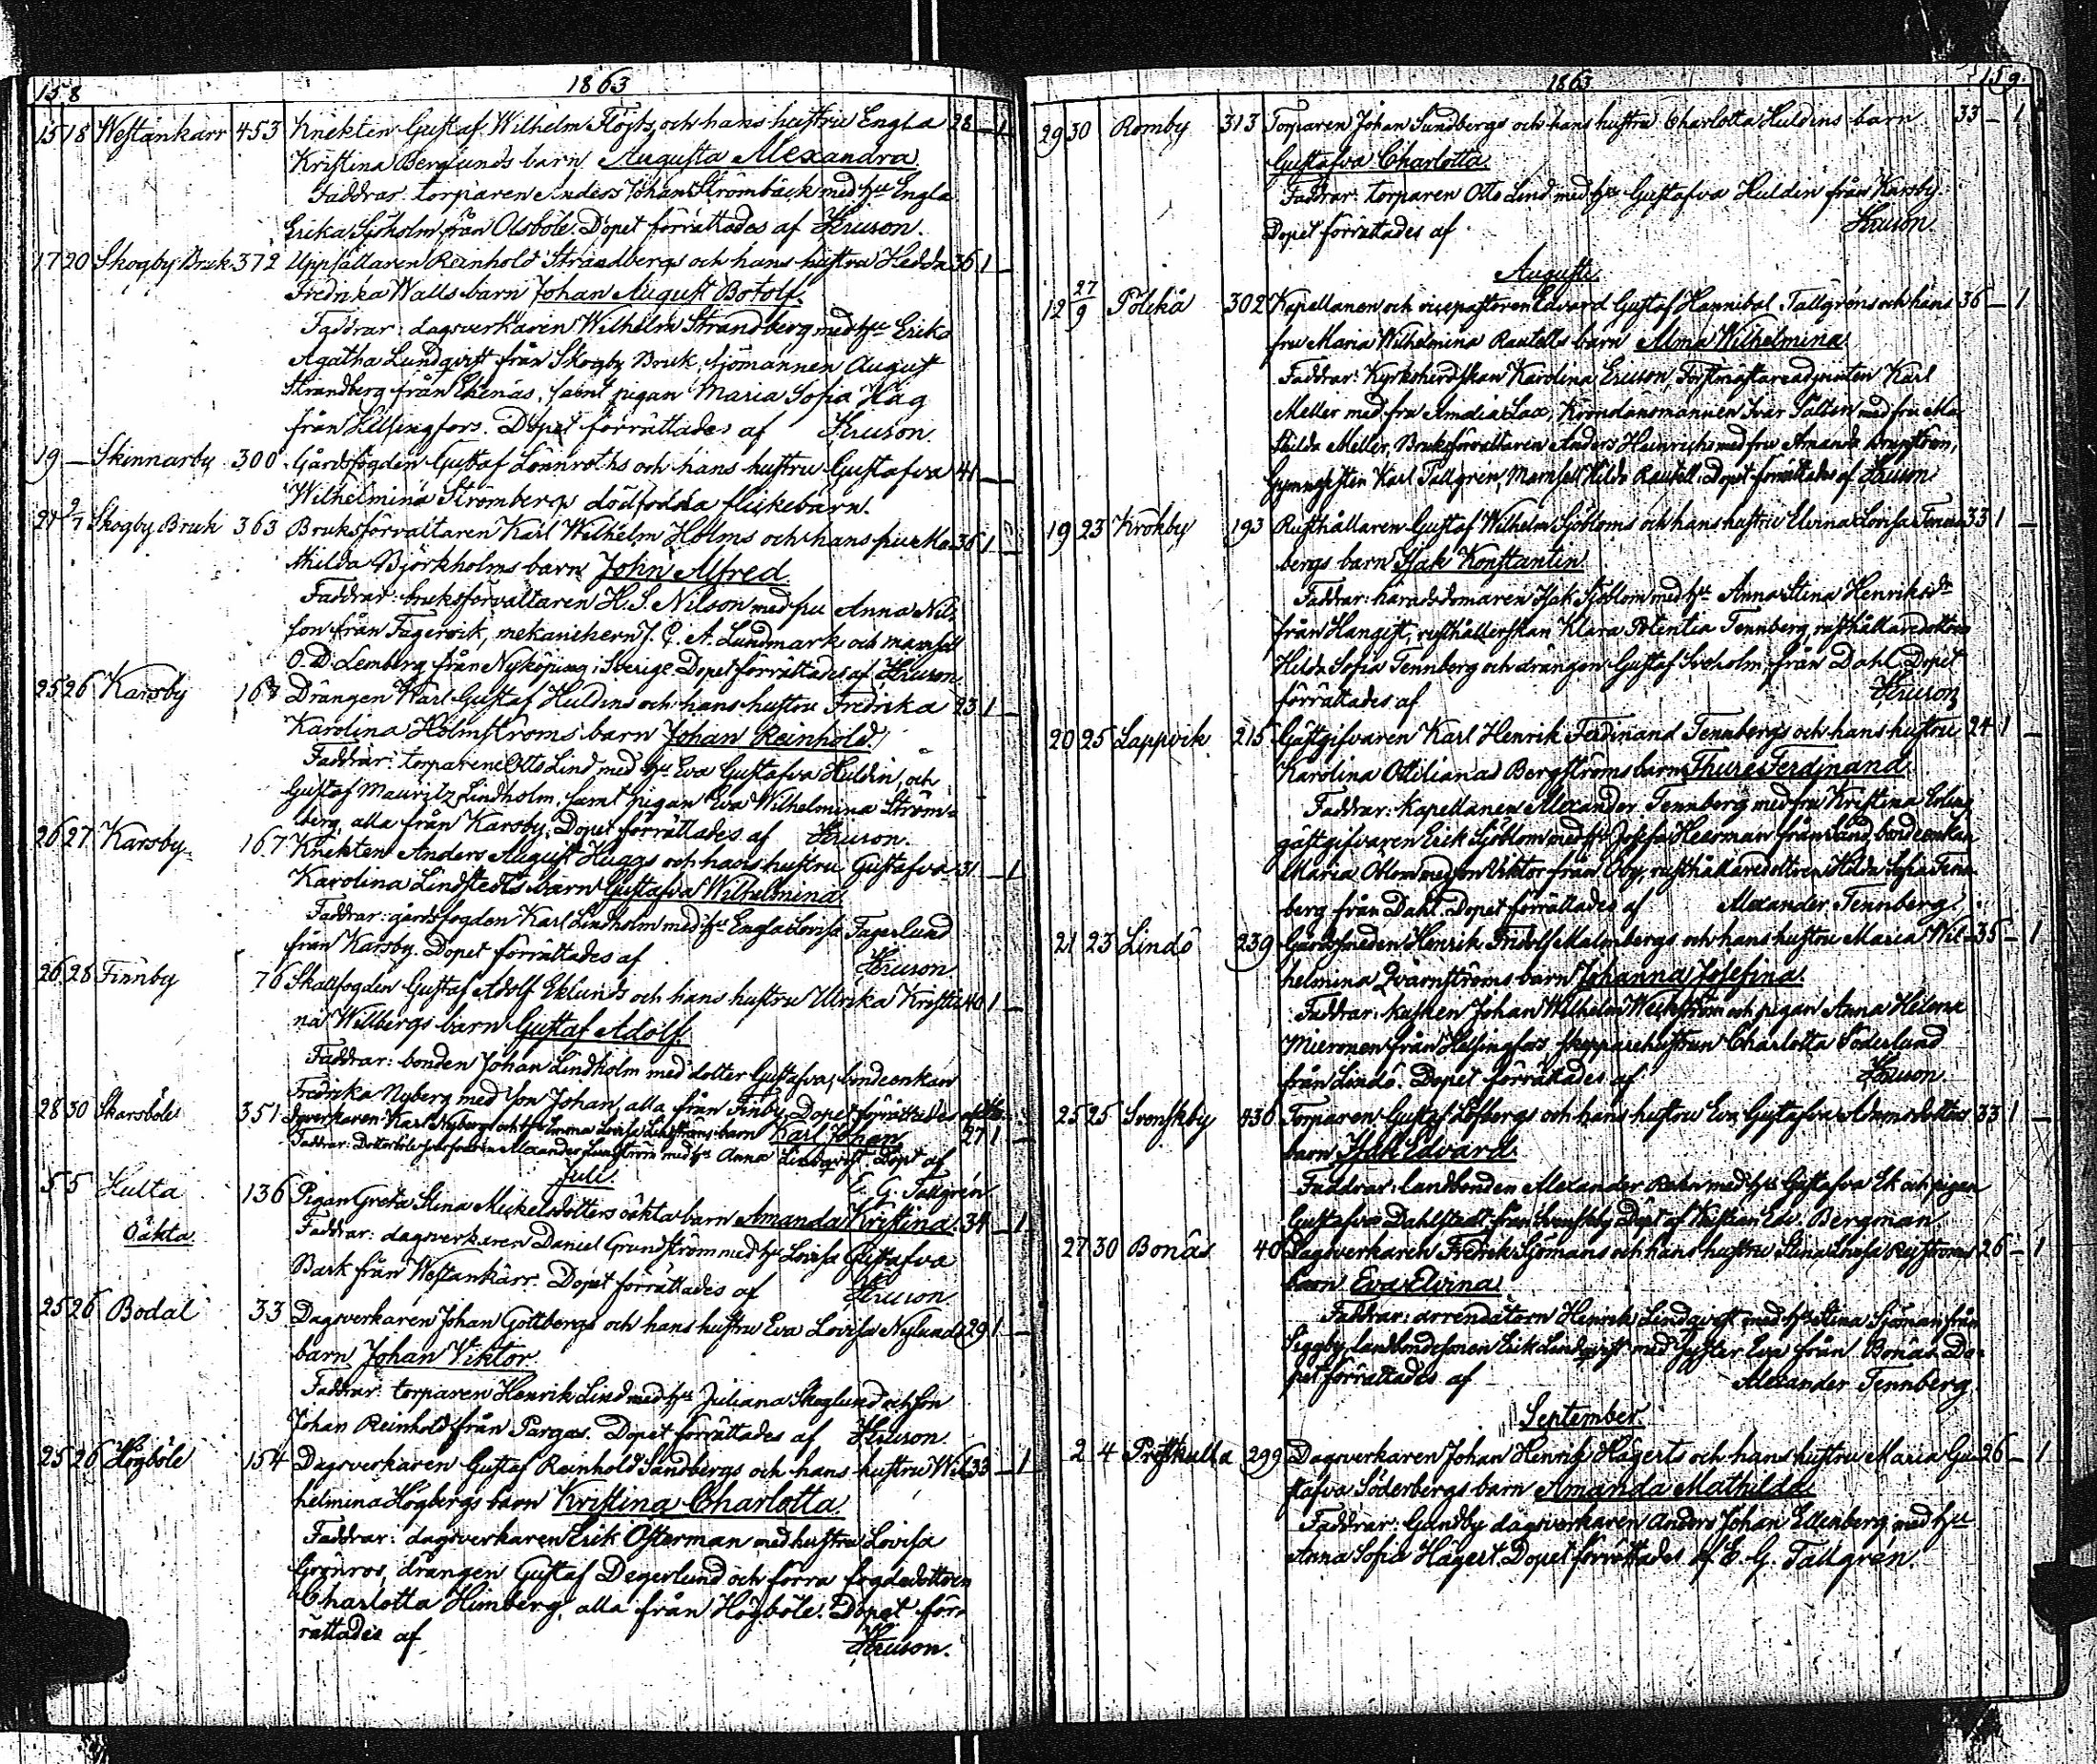 158
1863
15 18 Westankärr 453 Knekten Gustaf Wilhelm Flöjts och hans hustru Engla 28 – 1
Kristina Berglunds barn Augusta Alexandra.
Faddrar: torparen Anders Johan Strömbäck med hu Engla
Erika Sjöholm från Olsböle. Dopet förrättades af
17 20 Skogby Bruk 372 Uppsättaren Reinhold Strandbergs och hans hustru Hedda 36 1 –
Fredrika Walls barn Johan August Botolf.
Faddrar: dagsverkaren Wilhelm Strandberg med hu Erika
Agatha Lundqvist från Skogby Bruk, sjömannen August
Strandberg från Ekenäs, samt pigan Maria Sofia Häg
från Helsingfors. Dopet förrättades af
19 – Skinnarby 300 Gårdsfogden Gustaf Lönnroths och hans hustru Gustafva 41 – –
Wilhelmina Strömbergs dödfödda flickebarn.
24 2/7 Skogby Bruk 363 Bruksförvaltaren Karl Wilhelm Holms och hans fru Ma- 36 1 –
thilda Björkholms barn John Alfred.
Faddrar: bruksförvaltaren H. S. Nilson med fru Anna Nil-
son från Fagervik, mekanikern J. C. A. Lundmark och mamsell
O. D. Lemberg från Nyköping i Sverige. Dopet förrättades af
25 26 Karsby 168 Drängen Karl Gustaf Huldins och hans hustru Fredrika 23 1 –
Karolina Holmströms barn Johan Reinhold.
Faddrar: torparene Otto Lind med hu Eva Gustafva Huldin, och
Gustaf Mauritz Lindholm, samt pigan Eva Wilhelmina Ström-
berg, alla från Karsby. Dopet förrättades af
26 27 Karsby 167 Knekten Anders August Huggs och hans hustru Gustafva 31 – 1
Karolina Lindstedts barn Gustafva Wilhelmina.
Faddrar: gårdsfogden Karl Lindholm med hu Engla Lovisa Fagerlund
från Karsby. Dopet förrättades af
26 28 Finnby 76 Skallfogden Gustaf Adolf Eklunds och hans hustru Ulrika Kristi- 40 1 –
na Willbergs barn Gustaf Adolf.
Faddrar: bonden Johan Lindholm med dotter Gustafva, bondeenkan
Fredrika Nyberg med son Johan, alla från Finby. Dopet förrättades af
28 30 Skarsböle 351 Dagsverkaren Karl Nybergs och hu Emma Lovisa Lindströms barn Karl Johan 27 1 –
Faddrar: Alexander Lundström med hu Anna Lindqvist. Döpt af
E. G. Tallgrén
Juli.
5 5 Hulta 136 Pigan Greta Stina Mickelsdotters oäkta barn Amanda Kristina. 34 – 1
oäkta
Faddrar: dagsverkaren Daniel Grundström med hu Lovisa Gustafva
Bark från Westankärr. Dopet förrättades af
25 26 Bodal 33 Dagsverkaren Johan Gottbergs och hans hustru Eva Lovisa Nylunds 29 1 –
barn Johan Viktor.
Faddrar: torparen Henrik Lind med hu Juliana Skoglund och son
Johan Reinhold från Pargas. Dopet förrättades af
25 26 Högböle 154 Dagsverkaren Gustaf Reinhold Sandbergs och hans hustru Wil- 33 – 1
helmina Högbergs barn Kristina Charlotta.
Faddrar: dagsverkaren Erik Österman med hustru Lovisa
Grönros, drängen Gustaf Degerlund och förra fogdedottren
Charlotta Himberg, alla från Högböle. Dopet för-
rättades af
1863
159
29 30 Romby 313 Torparen Johan Sundbergs och hans hustru Charlotta Huldins barn 33 – 1
Gustafva Charlotta.
Faddrar: torparen Otto Lind med hu Gustafva Huldin från Karsby.
Dopet förrättades af
Augusti.
12 27/9 Polskå 302 Kapellanen och vicepastoren Edvard Gustaf Hannibal Tallgréns och hans 36 – 1
fru Maria Wilhelmina Rautells barn Alma Wilhelmina.
Faddrar: Kyrkoherdskan Karolina, Forstmästareadjunten Karl
Meller med fru Amalia, Kronolänsmannen Ivar Taltén med fru Ma-
thilda Meller, Bruksförvaltaren Anders Heinrichs med fru Amanda,
Gymnasisten Karl Tallgrén, Mamsell Hilda Rautell. Dopet förrättades af
19 23 Krokby 193 Rusthållaren Gustaf Wilhelm Sjöbloms och hans hustru Elvina Lovisa Tenn- 33 1 –
bergs barn Isak Konstantin.
Faddrar: häradsdomaren Isak Sjöblom med hu Anna Stina Henriksdr
från Hangist, rusthållerskan Klara Potentia Tennberg, rusthållaredottren
Hilda Sofia Tennberg och drängen Gustaf från Dahl. Dopet
förrättades af
20 25 Lappvik 215 Gästgifvaren Karl Henrik Ferdinand Tennbergs och hans hustru 24 1 –
Karolina Ottilianas Bergströms barn Thure Ferdinand.
Faddrar: kapellanen Alexander Tennberg med fru Kristina,
gästgifvaren Erik Sjöblom med hu Josefa Heerman från, bondeenkan
Maria med son Viktor från Öby, rusthållaredottren Hilda Sofia Tenn-
berg från Dahl. Dopet förrättades af Alexander Tennberg.
21 23 Lindö 239 Gårdssmeden Henrik Fridolf Malmbergs och hans hustru Maria Wil- 35 – 1
helmina Qvarnströms barn Johanna Josefina.
Faddrar: kusken Johan Wilhelm Weckström och pigan Anna Helena
Mieronen från Helsingfors, skepparehustrun Charlotta Söderlund
från Lindö. Dopet förrättades af
25 25 Svenskby 436 Torparen Gustaf Löfbergs och hans hustru Eva Gustafva Adamsdotters 33 1 –
barn Isak Edvard.
Faddrar: landbonden Alexander med hu Gustafva Ek och pigan
Gustafva Dahlstedt från Svenskby. Döpt af Kristian Edv. Bergman
27 30 Bonäs 40 Dagsverkaren Fredrik Sjömans och hans hustru Stina Lovisa 26 – 1
barn Eva Elvina.
Faddrar: arrendatorn Henrik Lindqvist med hu Stina Sjöman från
Siggby, landbondesonen Erik Lindqvist med syster Eva från Bonäs. Do-
pet förrättades af Alexander Tennberg.
September.
2 4 Prestkulla 299 Dagsverkaren Johan Henrik Hägerts och hans hustru Maria Gu- 26 – 1
stafva Söderbergs barn Amanda Mathilda.
Faddrar: Gundby dagsverkaren Anders Johan Ellenberg med hu
Anna Sofia Hägert. Dopet förrättades af E. G. Tallgrén.